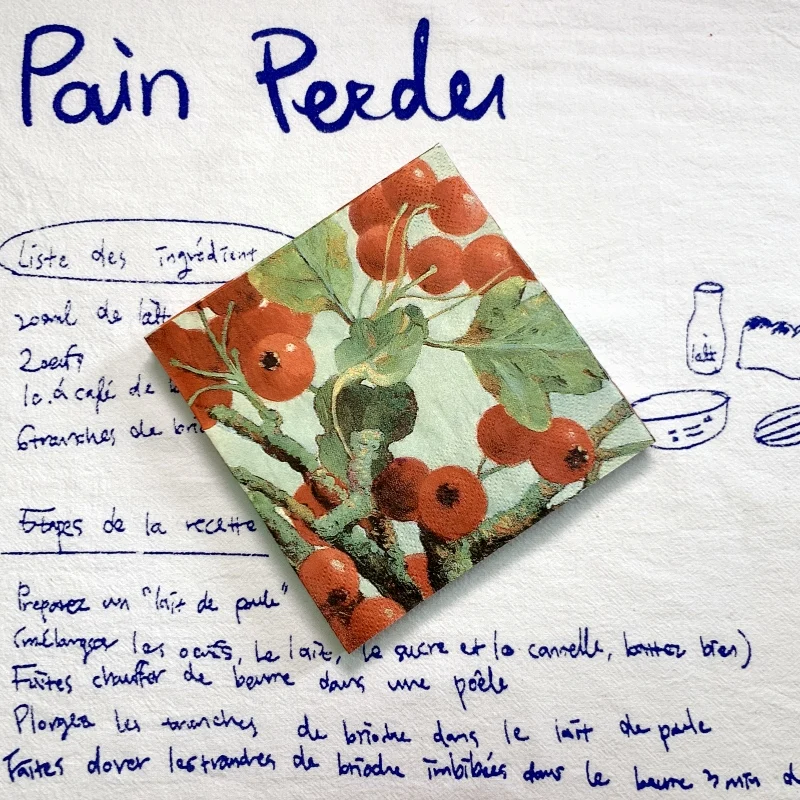 Pain Perdu
Liste des ingrédient
200ml de lait
2 oeufs
1c. à café de
6 tranches de brio
lait
Etapes de la recette
Préparez un "lait de poule"
(mélanger les oeufs, le lait, le sucre et la cannelle, battez bien)
Faites chauffer de beurre dans une pôêle
Plongez les tranches de brioche dans le lait de poule
Faites dorer les tranches de brioche imbibées dans le beurre 3 min d